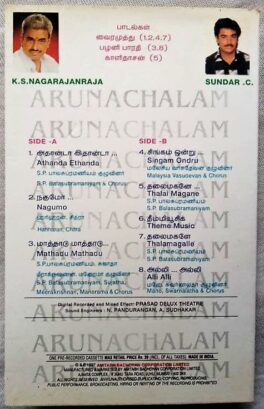 பாடல்கள்
வைரமுத்து (1,2,4,7)
பழனி பாரதி (3,8)
காளிதாசன் (5)
K.S.NAGARAJANRAJA
SUNDAR .C.
ARUNACHALAM
SIDE -A
1. அதாண்டா இதாண்டா
Athanda Ethanda
S.P. பாலசுப்ரமணியம் குழுவினர்
S.P. Balasubramaniyam & Chorus
2. நகுமோ
Nagumo
ஹரிஹரன், சித்ரா
Hariharan, Chitra
3. மாத்தாடு மாத்தாடு...
Mathadu Mathadu
S.P. பாலசுப்ரமணியம், சுஜாதா
S.P. Balasubramaniyam, Sujatha,
Meerakrishnan, Mahorama & Chorus
SIDE -B
4. சிங்கம் ஒன்று
Singam Ondru
மலேசிய வாசுதேவன் குழுவினர்
Malaysia Vasudevan & Chorus
5. தலைமகனே
Thalai Magane
S.P. பாலசுப்ரமணியம்
S.P. Balasubramaniyam
6. தீம்மியூசிக்
Theme Music
7. தலைமகளே
Thalamagalle
S.P. பாலசுப்ரமணியம்
S.P. Balasubramaniyam
8. அல்லி ... அல்லி
Alli Alli
Mano, Swarnalatha & Chorus
Digital Recorded and Mixed Effect: PRASAD DELUX THEATRE
Sound Engineers : N. PANDURANGAN, A. SUDHAKAR
ONE PRE-RECORDED CASSETTE MAX RETAIL PRICE Rs. 39 (INCL. OF ALL TAXES). MADE IN INDIA.